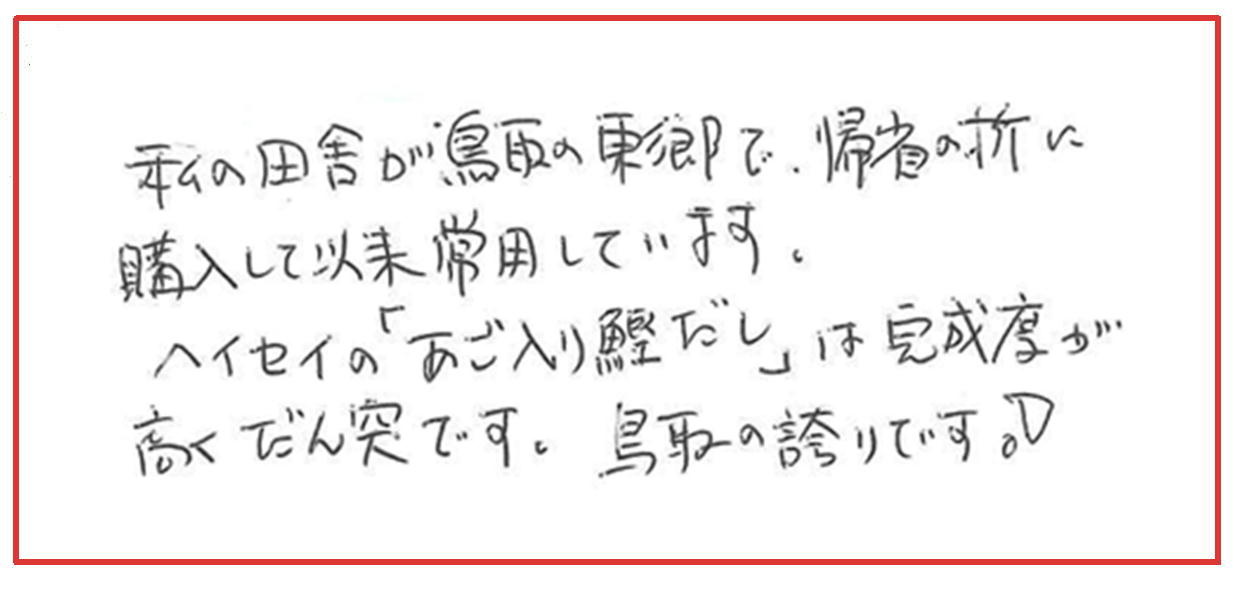 私の田舎が鳥取の東郷で、帰省の折に
購入して以来常用しています。
ヘイセイの「あご入り鰹だし」は完成度が
高くだん突です。鳥取の誇りです。